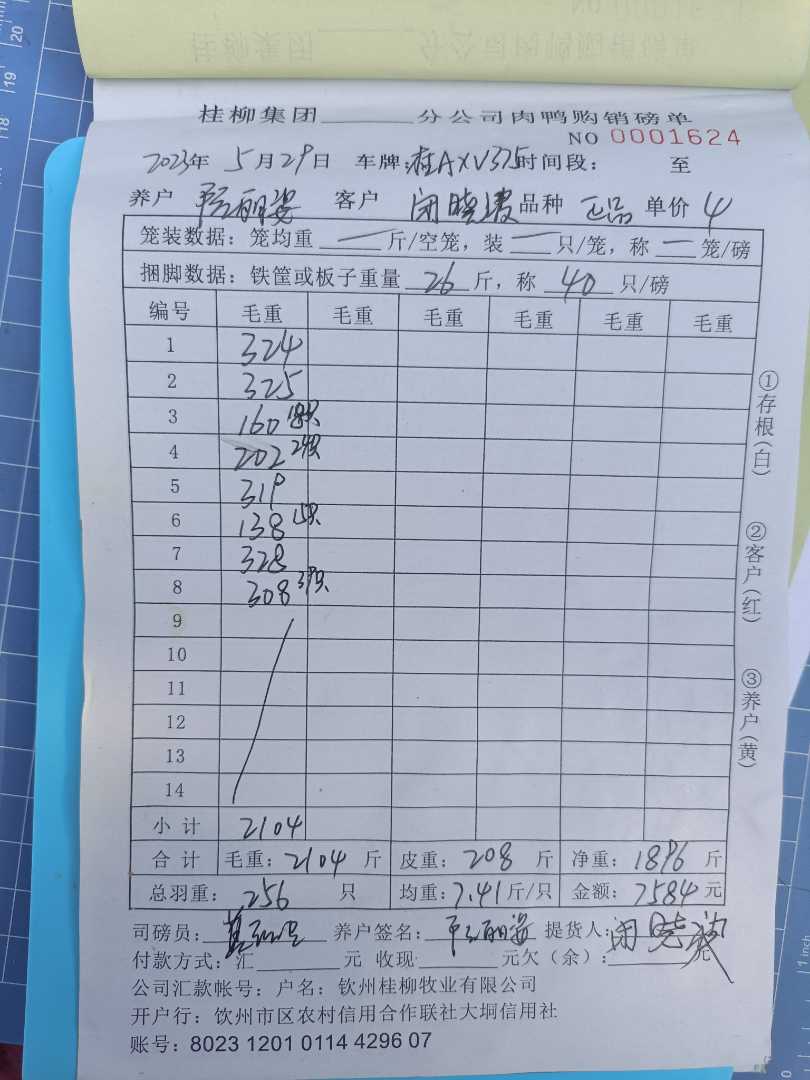 桂柳集团______分公司肉鸭购销磅单
NO 0001624
2023年 5月29日 车牌:桂AXV375时间段: 至
养户 丽姿 客户 闭晓 品种 正品 单价 4
笼装数据: 笼均重 一 斤/空笼, 装 一 只/笼, 称 一 笼/磅
捆脚数据: 铁筐或板子重量 26 斤, 称 40 只/磅
编号 毛重 毛重 毛重 毛重 毛重 毛重
1 324
2 325
3 160
4 202
5 319
6 138
7 328
8 308
9
10
11
12
13
14
小计 2104
合计 毛重: 2104 斤 皮重: 208 斤 净重: 1896 斤
总羽重: 256 只 均重: 7.41 斤/只 金额: 7584 元
司磅员: 养户签名: 丽姿 提货人: 闭晓
付款方式: 汇______元 收现______元欠(余):______元
公司汇款帐号: 户名: 钦州桂柳牧业有限公司
开户行: 钦州市区农村信用合作联社大垌信用社
账号: 8023 1201 0114 4296 07
①存根(白)
②客户(红)
③养户(黄)